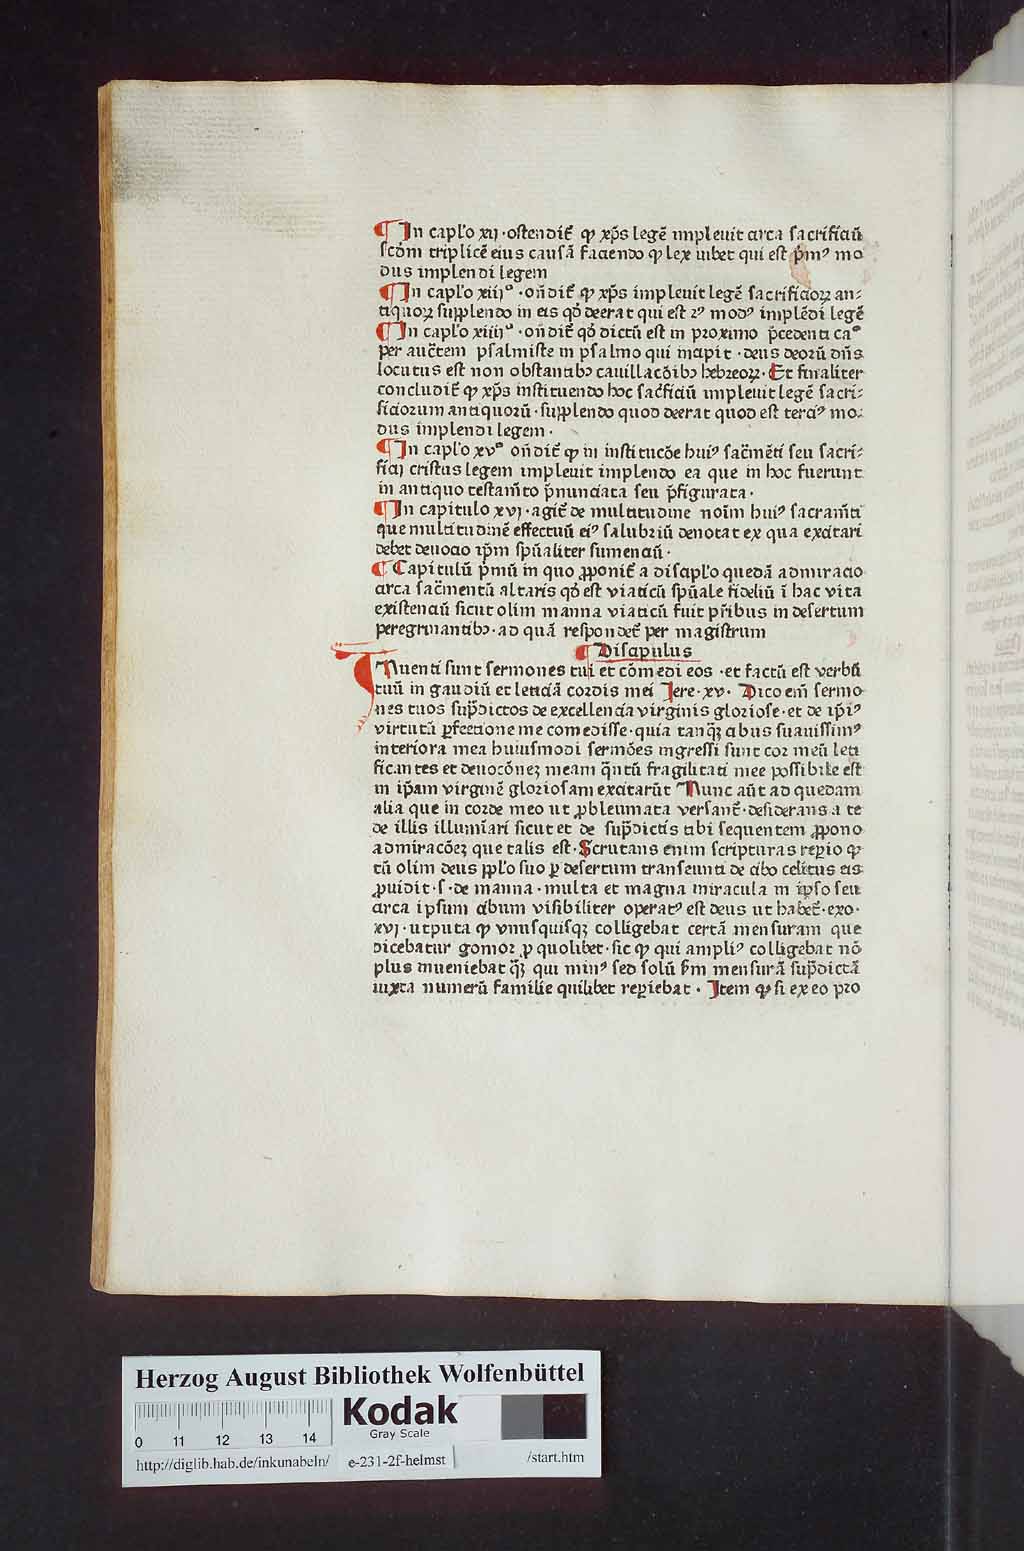 ¶ In capl'o xij · ostendit᷑ ꝙ xp̄s legē impleuit circa sacrificiū
scd̄m triplicē eius causā faciendo ꝙ lex iubet qui est p̄mꝰ mo
dus implendi legem
¶ In capl'o xiijº · on̄dit᷑ ꝙ xp̄s impleuit legē sacrificioꝝ an⸗
tiquoꝝ supplendo in eis qd̓ deerat qui est 2ꝰ modꝰ implēdi legē
¶ In capl'o xiiijº · on̄dit᷑ qd̓ dictū est in proximo p̄cedenti caº
per auct̄em psalmiste in psalmo qui incipit · deus deorū dn̄s
locutus est non obstantibꝫ cauillacōibꝫ hebreoꝝ · Et finaliter
concludit᷑ ꝙ xp̄s instituendo hoc sac̄ficiū impleuit legē sacri⸗
ficiorum antiquorū · supplendo quod deerat quod est terciꝰ mo⸗
dus implendi legem ·
¶ In capl'o xvº on̄dit᷑ ꝙ in institucōe huiꝰ sac̄mēti seu sacri⸗
ficij cristus legem impleuit implendo ea que in hoc fuerunt
in antiquo testam̄to p̄nunciata seu p̄figurata ·
¶ In capitulo xvj · agit᷑ de multitudine noīm huiꝰ sacram̄ti
que multitudinē effectuū eiꝰ salubriū denotat ex qua excitari
debet deuocio ip̄m spūaliter sumenciū ·
¶ Capitulū p̄mū in quo ꝓponit᷑ a discipl'o quedā admiracio
circa sac̄mentū altaris qd̓ est viaticū spūale fideliū ī hac vita
existenciū sicut olim manna viaticū fuit pr̄ibus in desertum
peregrinantibꝫ · ad quā respondet᷑ per magistrum
¶ Discipulus
Inuenti sunt sermones tui et cōmedi eos · et factū est verbū
tuū in gaudiū et leticiā cordis mei Jere · xv · Dico em̄ sermo
nes tuos sup̄dictos de excellencia virginis gloriose · et de ip̄iꝰ
virtutū ꝑfectione me comedisse · quia tanqꝫ cibus suauissimꝰ
interiora mea huiusmodi sermōes ingressi sunt cor meū leti
ficantes et deuocōneꝫ meam q̄ntū fragilitati mee possibile est
in ip̄am virginē gloriosam excitarūt Nunc aūt ad quedam
alia que in corde meo ut ꝓbleumata versant᷑ · desiderans a te
de illis illumīari sicut et de sup̄dictis tibi sequentem ꝓpono
admiracōeꝫ que talis est · Scrutans enim scripturas reꝑio ꝙ
cū olim deus ppl'o suo ꝑ desertum transeunti de cibo celitus eis
ꝓuidit · s · de manna · multa et magna miracula in ipso seu
circa ipsum cibum visibiliter operatꝰ est deus ut habet᷑ · exo ·
xvj · utputa ꝙ vnusquisqꝫ colligebat certā mensuram que
dicebatur gomor ꝑ quolibet · sic ꝙ qui ampliꝰ colligebat nō
plus inueniebat qꝫ qui minꝰ sed solū ẜm mensurā sup̄dictā
iuxta numerū familie quilibet reꝑiebat · Item ꝙ si ex eo pro
Herzog August Bibliothek Wolfenbüttel
Kodak
Gray Scale
0 11 12 13 14
http://diglib.hab.de/inkunabeln/ e-231-2f-helmst /start.htm